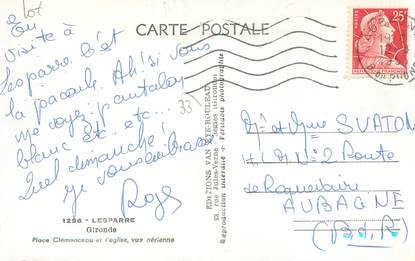 CARTE POSTALE
En
visite à
Lesparre. C'est
la pacaule. Ah! si vous
me voyez, pantalon
blanc etc... etc...
Quel dimanche!
Je vous embrasse
Roger
33
1296 - LESPARRE
Gironde
Place Clemenceau et l'église, vue aérienne
EDITIONS VAN EYE-ROULEAU
53, rue Jules-Verne (Gironde)
Reproduction interdite - Véritable photographie
25F
Mr et Mme SVATON
Route
de Roquevaire
AUBAGNE
(B.d.R)